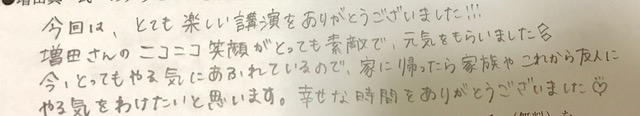 今回は、とても楽しい講演をありがとうございました!!!
増田さんのニコニコ笑顔がとっても素敵で、元気をもらいました
今、とってもやる気にあふれているので、家に帰ったら家族やこれから友人に
やる気をわけたいと思います。幸せな時間をありがとうございました♡